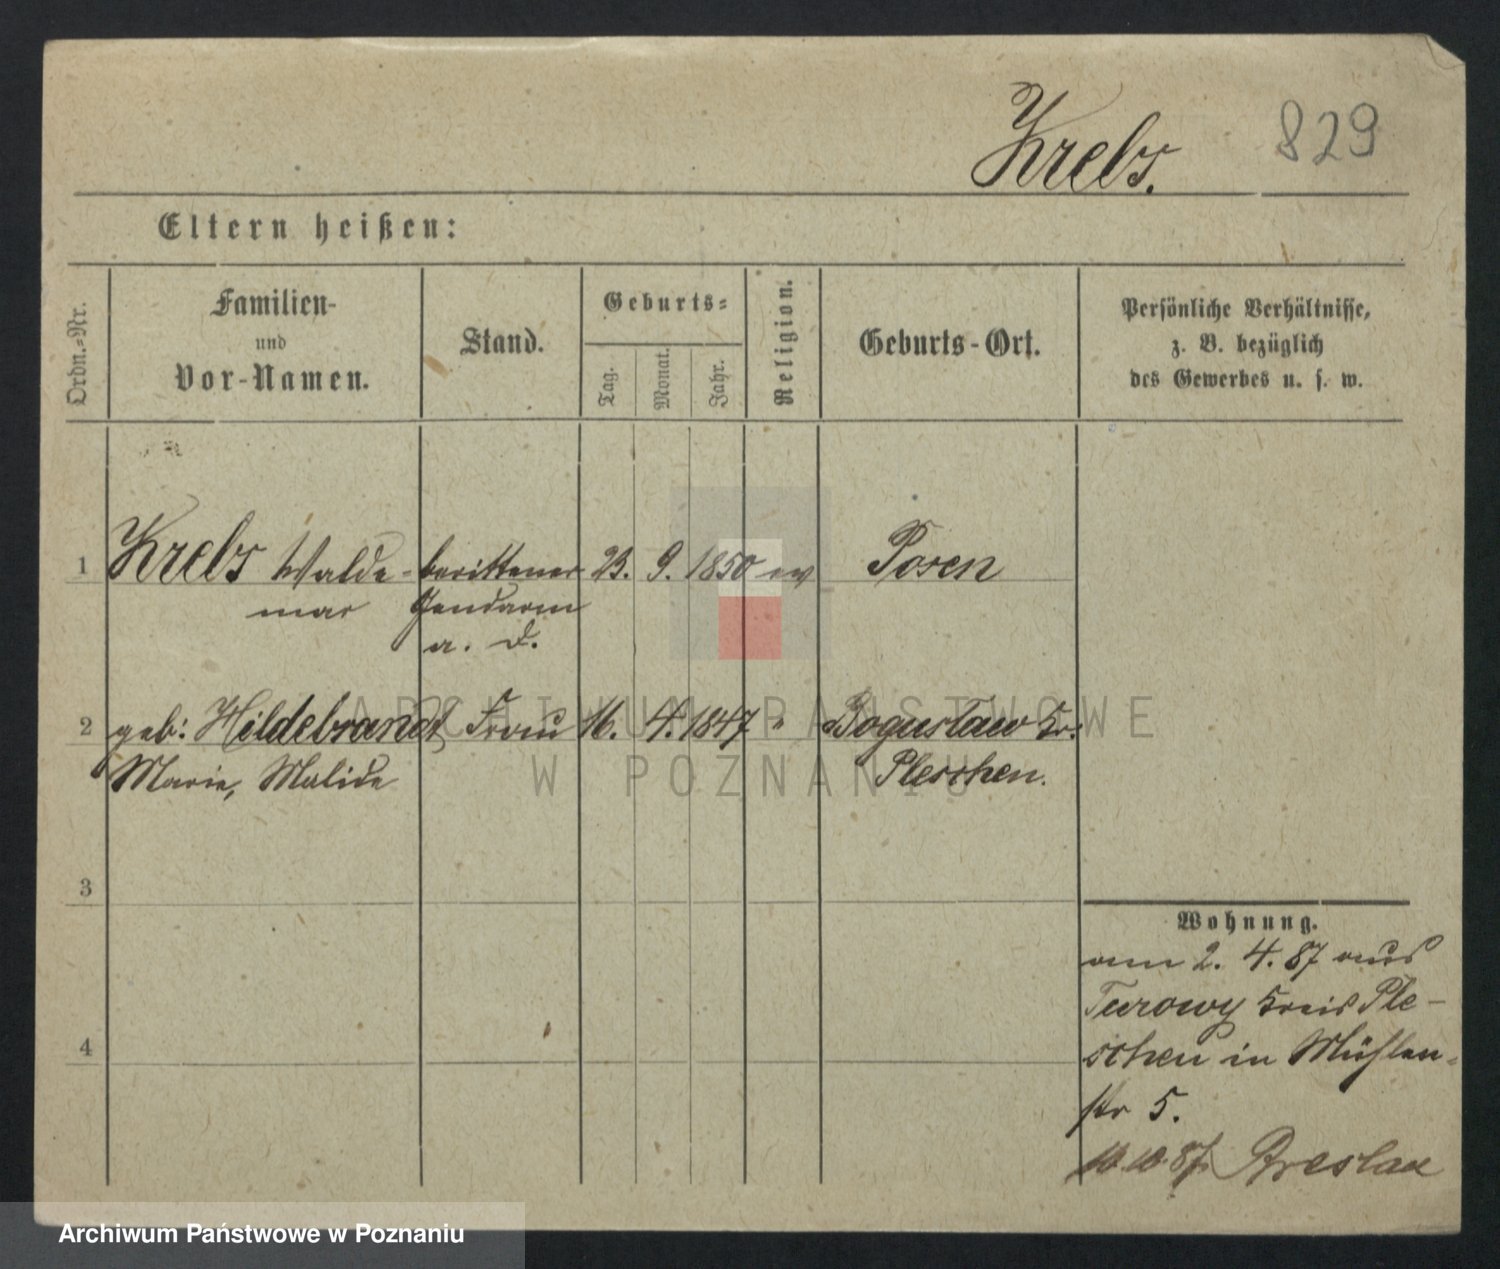 Krebs. 829
Eltern heißen:
Ordn.-Nr.
Familien-
und
Vor-Namen.
Stand.
Geburts-
Tag.
Monat.
Jahr.
Religion.
Geburts-Ort.
Persönliche Verhältnisse,
z. B. bezüglich
des Gewerbes u. s. w.
1 Krebs Walde- berittener 23. 9. 1850 ev Posen
mar Gendarm
a. D.
2 geb: Hildebrandt Frau 16. 4. 1847 " Boguslaw Kr.
Marie, Malide Pleschen.
3
Wohnung.
am 2. 4. 87 aus
Turowy Kreis Ple-
schen in Mühlen-
4
str 5.
10.10.87 Breslau
ARCHIWUM PAŃSTWOWE
W POZNANIU
Archiwum Państwowe w Poznaniu